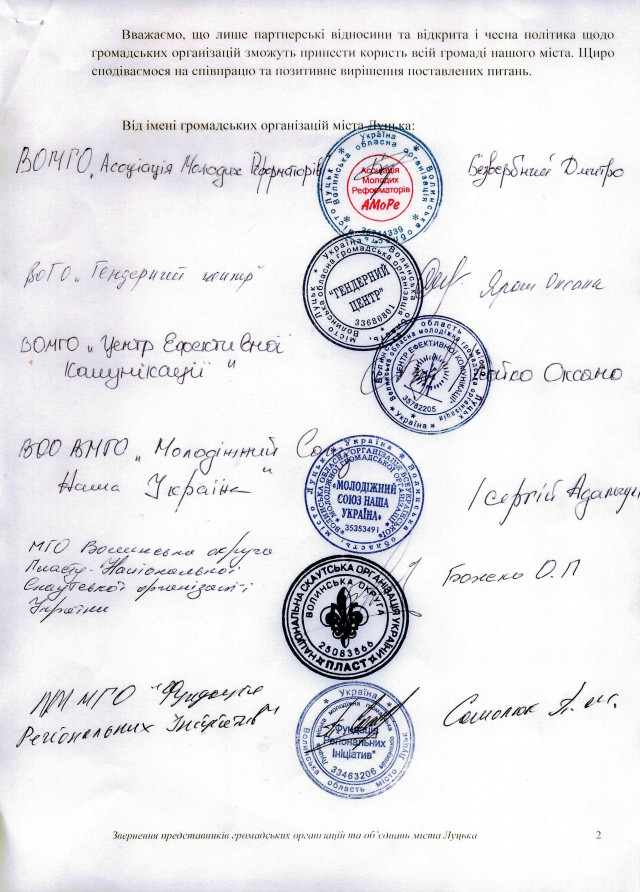 Вважаємо, що лише партнерські відносини та відкрита і чесна політика щодо
громадських організацій зможуть принести користь всій громаді нашого міста. Щиро
сподіваємося на співпрацю та позитивне вирішення поставлених питань.
Від імені громадських організацій міста Луцька:
ВОМГО „Асоціація Молодих Реформаторів
Україна
Волинська обласна організація
Асоціація
Молодих
Реформаторів
АМоРе
Безвербний Дмитро
ВОГО „Гендерний центр"
Україна
Волинська обласна громадська організація
"ГЕНДЕРНИЙ
ЦЕНТР"
33680801
місто Луцьк
Ярош Оксана
ВОМГО „Центр Ефективної
Комунікації"
Волинська обласна молодіжна громадська організація
ЦЕНТР ЕФЕКТИВНОЇ КОМУНІКАЦІЇ
35782205
Україна
Оксана
ВОО ВМГО „Молодіжний Союз
Наша Україна"
Україна
"МОЛОДІЖНИЙ
СОЮЗ НАША
УКРАЇНА"
35353491
Волинська область, місто Луцьк
Сергій
МГО Волинська округа
Пласту-Національної
Скаутської організації
України
НАЦІОНАЛЬНА СКАУТСЬКА ОРГАНІЗАЦІЯ УКРАЇНИ
ВОЛИНСЬКА ОКРУГА
25083566
ПЛАСТ
О.П
МГО "Фундація
Регіональних Ініціатив"
Україна
"Фундація
Регіональних
Ініціатив"
33463206
Волинська область місто Луцьк
Самолюк
Звернення представників громадських організацій та об'єднань міста Луцька
2